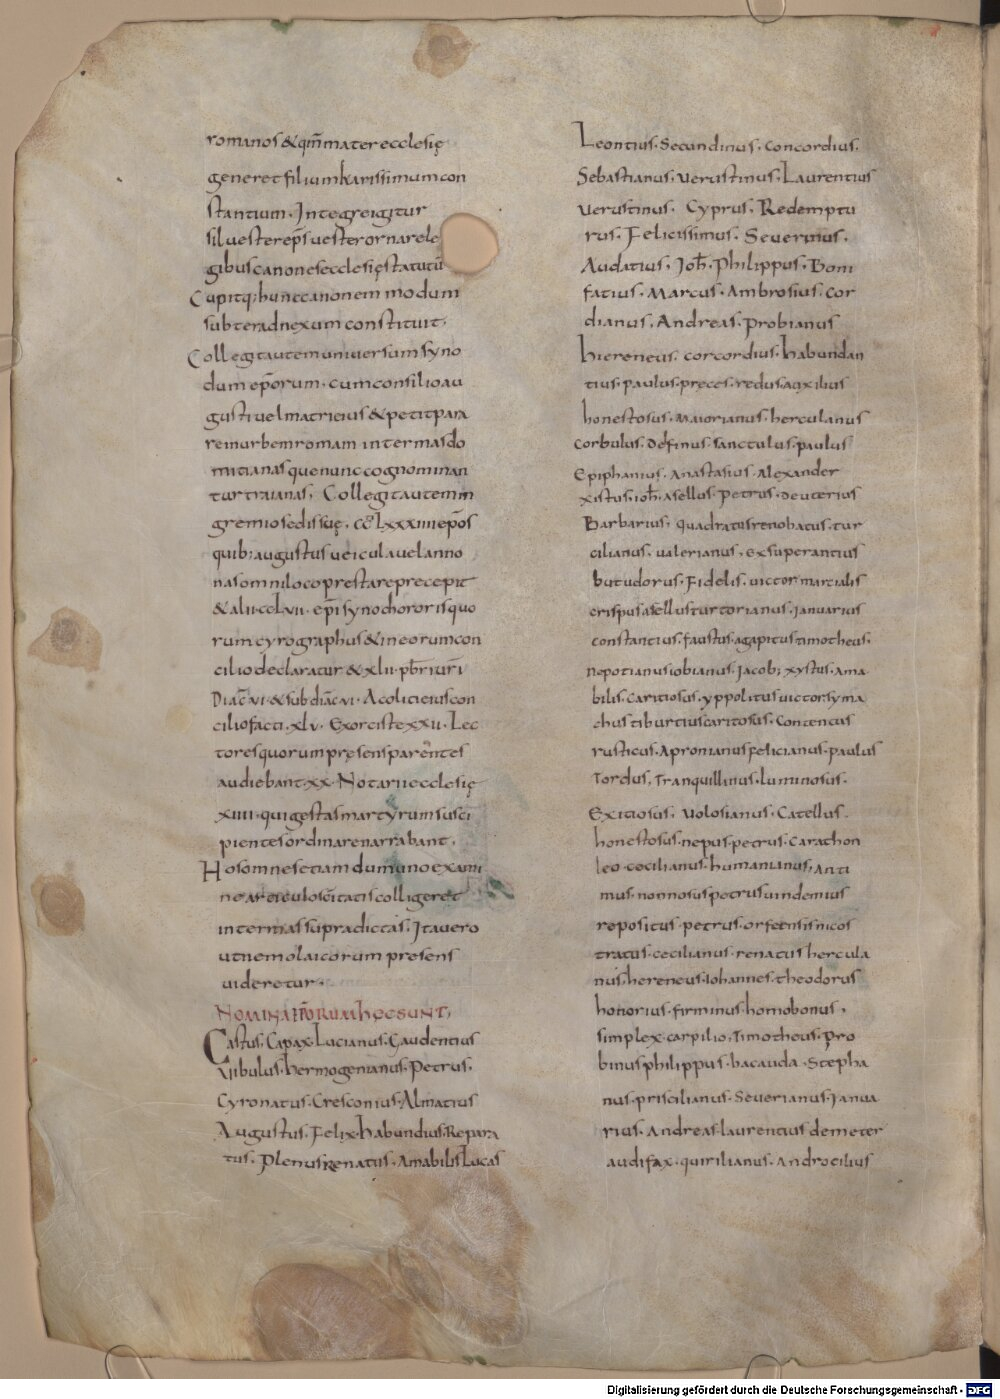 romanos &qm̅ mater ecclesię
generet filium karissimum con
stantium. Integre igitur
siluester ep̅s uester ornare le
gibus canones ecclesię statutū
Cupitq; hunc canonem modum
subter adnexum constituit.
Collegit autem uniuersum syno
dum ep̅orum. cum consilio au
gusti uel matri eius & petit para
re in urbem romam in termas do
mitianas que nunc cognominan
tur traianas. Collegit autem in
gremio sedis suę. cclxxxiiii ep̅os
quib; augustus ueicula uel anno
nas omni loco prestare precepit
& alii cclvii. ep̅i synochoror is quo
rum cyrographus & in eorum con
cilio declaratur & xlii. pb̅ri ur̅i
Diac̅ vi. & subdiac̅ vi. Acoliti eius con
cilio facti. xlv. Exorciste xxii. Lec
tores quorum pręsens parentes
audiebant. xx. Notarii ecclesię
xiiii. qui gestas martyrum susci
pientes ordinare narrabant.
Hos omnes etiam dum uno exami
ne articulo sc̅itatis colligeret
in termas supradictas. Ita uero
ut nemo laicorum presens
uideretur.
NOMINA IP̅ORUM HOC SUNT.
Castus. Capax. Lucianus. Gaudentius
Uibulus. hermogenianus. Petrus.
Cyronatus. Cresconius. Almatius
Augustus. Felix. habundius. Repara
tus. Plenus. Renatus. Amabilis. Lucas
Leontius. Secundinus. Concordius.
Sebastianus. Uerustinus. Laurentius
Uerustinus. Cyprus. Redemptu
rus. Felicissimus. Seuerinus.
Audatius. Joh̅. Philippus. Boni
fatius. Marcus. Ambrosius. Cor
dianus. Andreas. Probianus
hiereneus. corcordius. habundan
tius. paulus. pręces. redus. auxilius
honestosus. Maiorianus. herculanus
Corbulus. Definus. sanctulus. paulus
Epiphanius. Anastasius. Alexander
xistus. ioh̅. Asellus. Petrus. Deuterius
Barbarius. quadratus. renobatus. tur
cilianus. ualerianus. exsuperantius
butudorus. Fidelis. uictor. martialis
crispus. asellus. turtorianus. januarius
constantius. faustus. agapitus. timotheus.
nepotianus. iobianus. Jacob; xystus. Ama
bilis. Caritiosus. yppolitus. uictor. syma
chus. tiburtius. caritosus. Contentus
rusticus. Apronianus. felicianus. paulus
Tordus, Tranquillinus. Luminosus.
Exitiosus. Uolosianus. Catellus.
honestosus. nepus. petrus. Carathon
leo. cecilianus. humanianus, Anti
mus. nonnosus. petrus. uindemius
repositus. petrus. orfetnsis. nicos
tratus. cecilianus. renatus. hercula
nus. hereneus. iohannes. theodorus
honorius. firminus. homobonus.
simplex. carpilio. Timotheus. Pro
binus. philippus. bacauda. Stepha
nus. priscilianus. Seuerianus. Janua
rius. Andreas. laurentius. demeter
audifax. quirilianus. Androcilius
Digitalisierung gefördert durch die Deutsche Forschungsgemeinschaft - DFG